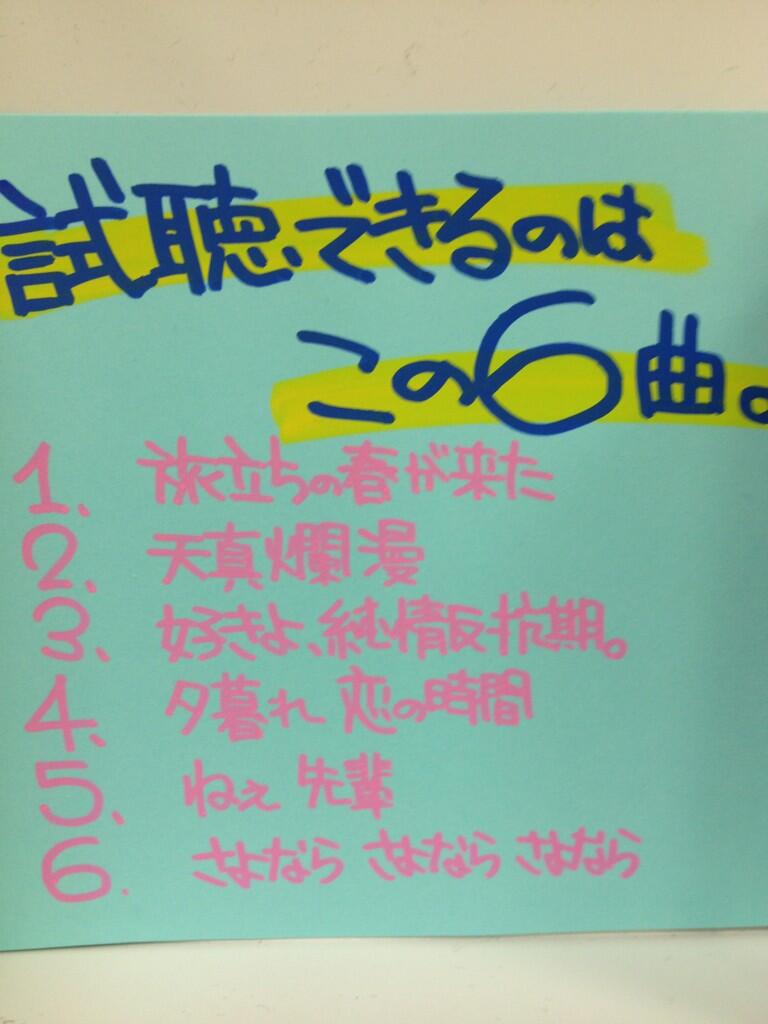 試聴できるのは
この6曲。
1、旅立ちの春が来た
2、天真爛漫
3、好きよ、純情反抗期。
4、夕暮れ 恋の時間
5、ねぇ 先輩
6. さよなら さよなら さよなら